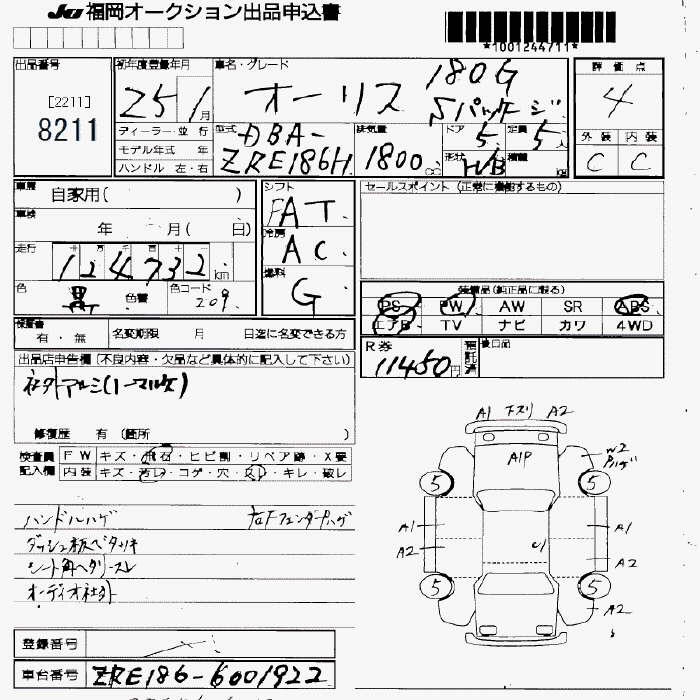 JU 福岡オークション出品申込書
*1001244711*
出品番号 初年度登録年月 車名・グレード 評価点
[2211]
8211
25 1月
オーリス 180G
Sパッケージ
4
ディーラー・並行
モデル年式 年
ハンドル 左・右
型式 DBA-
ZRE186H
排気量 1800 cc
ドア 5 定員 5人
形状 H/B 積載 kg
外装 内装
C C
車歴 自家用( )
車検 年 月( 日)
走行 十 万 千 百 十 一
124732 km
色 黒 色替 色コード 209
シフト FAT
冷房 AC
燃料 G
セールスポイント (正常に機能するもの)
装備品(純正品に限る)
PS PW AW SR ABS
エアB TV ナビ カワ 4WD
検査書 有・無 名変期限 月 日迄に名変できる方
R券 11450円 預託済 後日品
出品店申告欄 (不良内容・欠品など具体的に記入して下さい)
社外アルミ(ノーマル無)
修復歴 有 (箇所 )
検査員 FW キズ・飛石・ヒビ割・リペア跡・X要
記入欄 内装 キズ・汚レ・コゲ・穴・スレ・キレ・破レ
ハンドルハゲ 右Fフェンダーハゲ
ダッシュ板ベタツキ
シート角ヘタリ・スレ
オーディオ社外
A1 キズリ A2
A1P
W2
5 5
A1 A1
A2 A2
5 5
A2
登録番号
車台番号 ZRE186-6001922